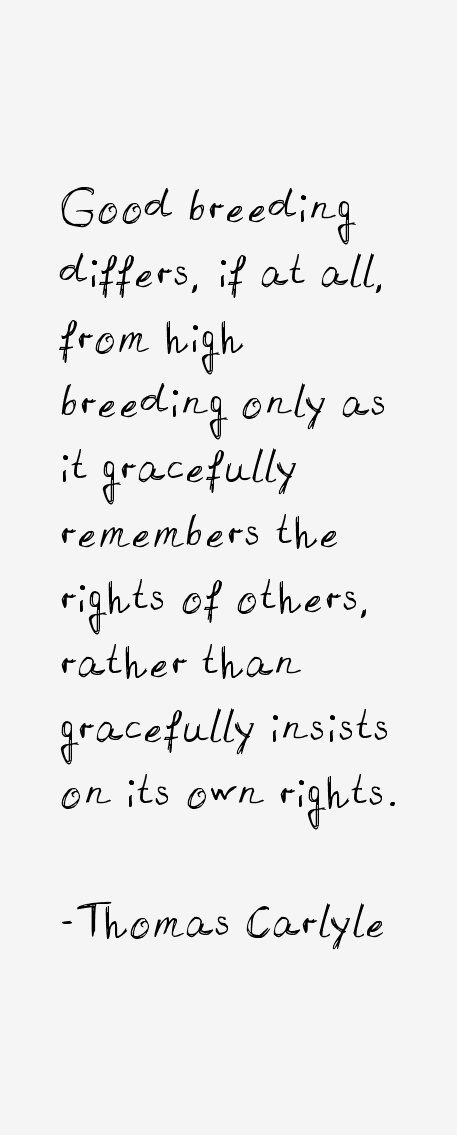 Good breeding
differs, if at all,
from high
breeding only as
it gracefully
remembers the
rights of others,
rather than
gracefully insists
on its own rights.
-Thomas Carlyle